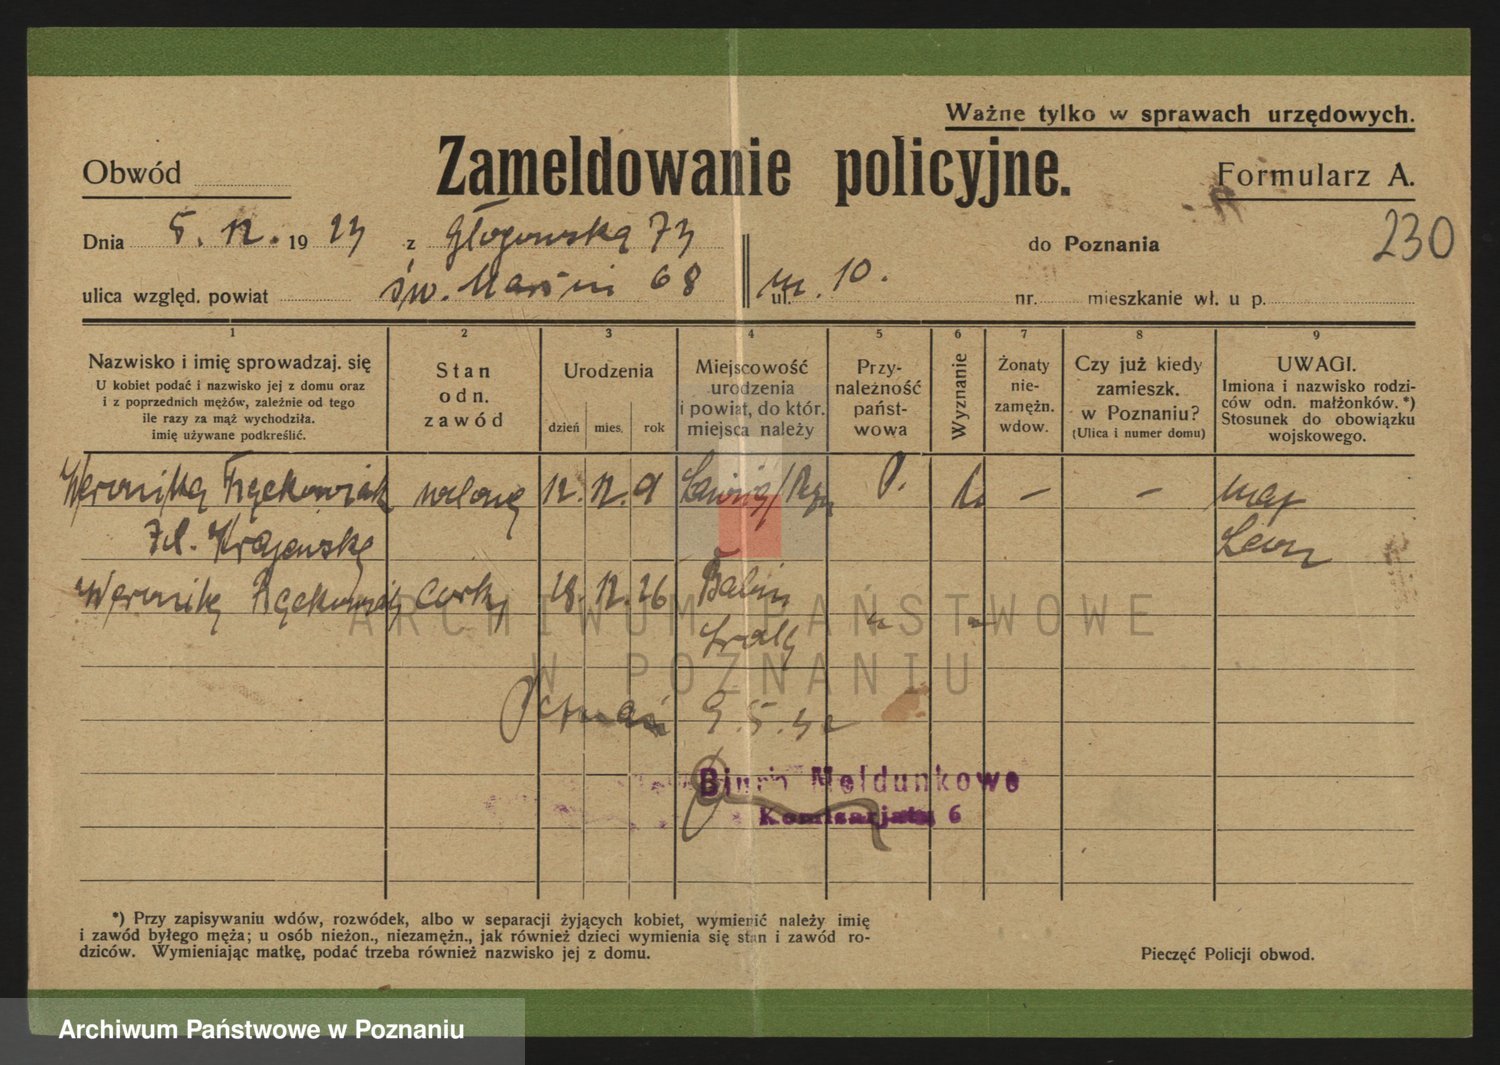 Ważne tylko w sprawach urzędowych.
Obwód
Zameldowanie policyjne.
Formularz A.
Dnia 5. 12. 19 z Głogowska 73 do Poznania
230
ulica względ. powiat św. Marcin 68 ul. m. 10. nr. mieszkanie wł. u p.
1 2 3 4 5 6 7 8 9
Nazwisko i imię sprowadzaj. się
U kobiet podać i nazwisko jej z domu oraz
i z poprzednich mężów, zależnie od tego
ile razy za mąż wychodziła.
imię używane podkreślić.
Stan
odn.
zawód
Urodzenia
dzień mies. rok
Miejscowość
urodzenia
i powiat, do któr.
miejsca należy
Przy-
należność
państ-
wowa
Wyznanie
Żonaty
nie-
zamężn.
wdow.
Czy już kiedy
zamieszk.
w Poznaniu?
(Ulica i numer domu)
UWAGI.
Imiona i nazwisko rodzi-
ców odn. małżonków.*)
Stosunek do obowiązku
wojskowego.
Weronika 12. 12. P. — — mąż
Krajewska Leon
Weronika córka 28. 12. 26
" "
9.5.
Biuro Meldunkowe
Komisarjatu 6
*) Przy zapisywaniu wdów, rozwódek, albo w separacji żyjących kobiet, wymienić należy imię
i zawód byłego męża; u osób nieżon., niezamężn., jak również dzieci wymienia się stan i zawód ro-
dziców. Wymieniając matkę, podać trzeba również nazwisko jej z domu.
Pieczęć Policji obwod.
ARCHIWUM PAŃSTWOWE
W POZNANIU
Archiwum Państwowe w Poznaniu